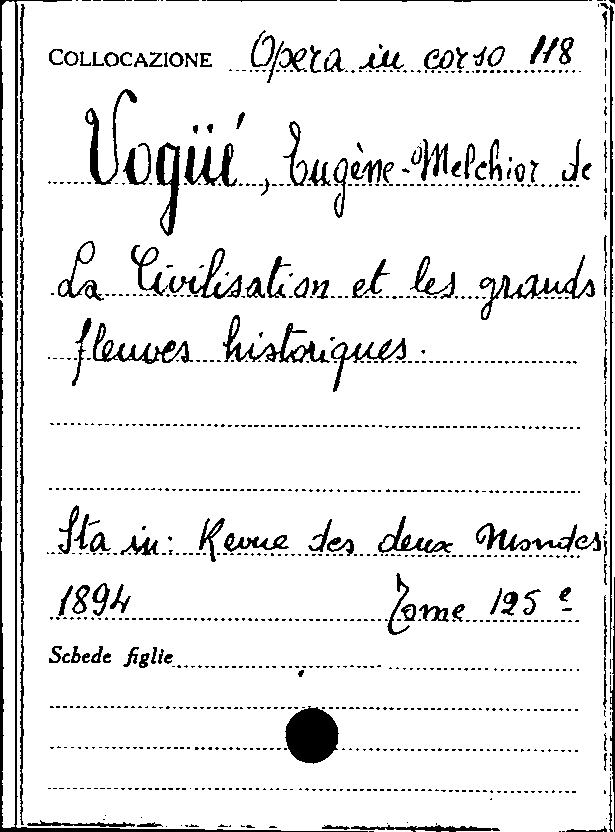 COLLOCAZIONE Opera in corso 118
Vogüé, Eugène-Melchior de
La Civilisation et les grands
fleuves historiques.
Sta in: Revue des deux Mondes
1894 Tome 125 e
Schede figlie